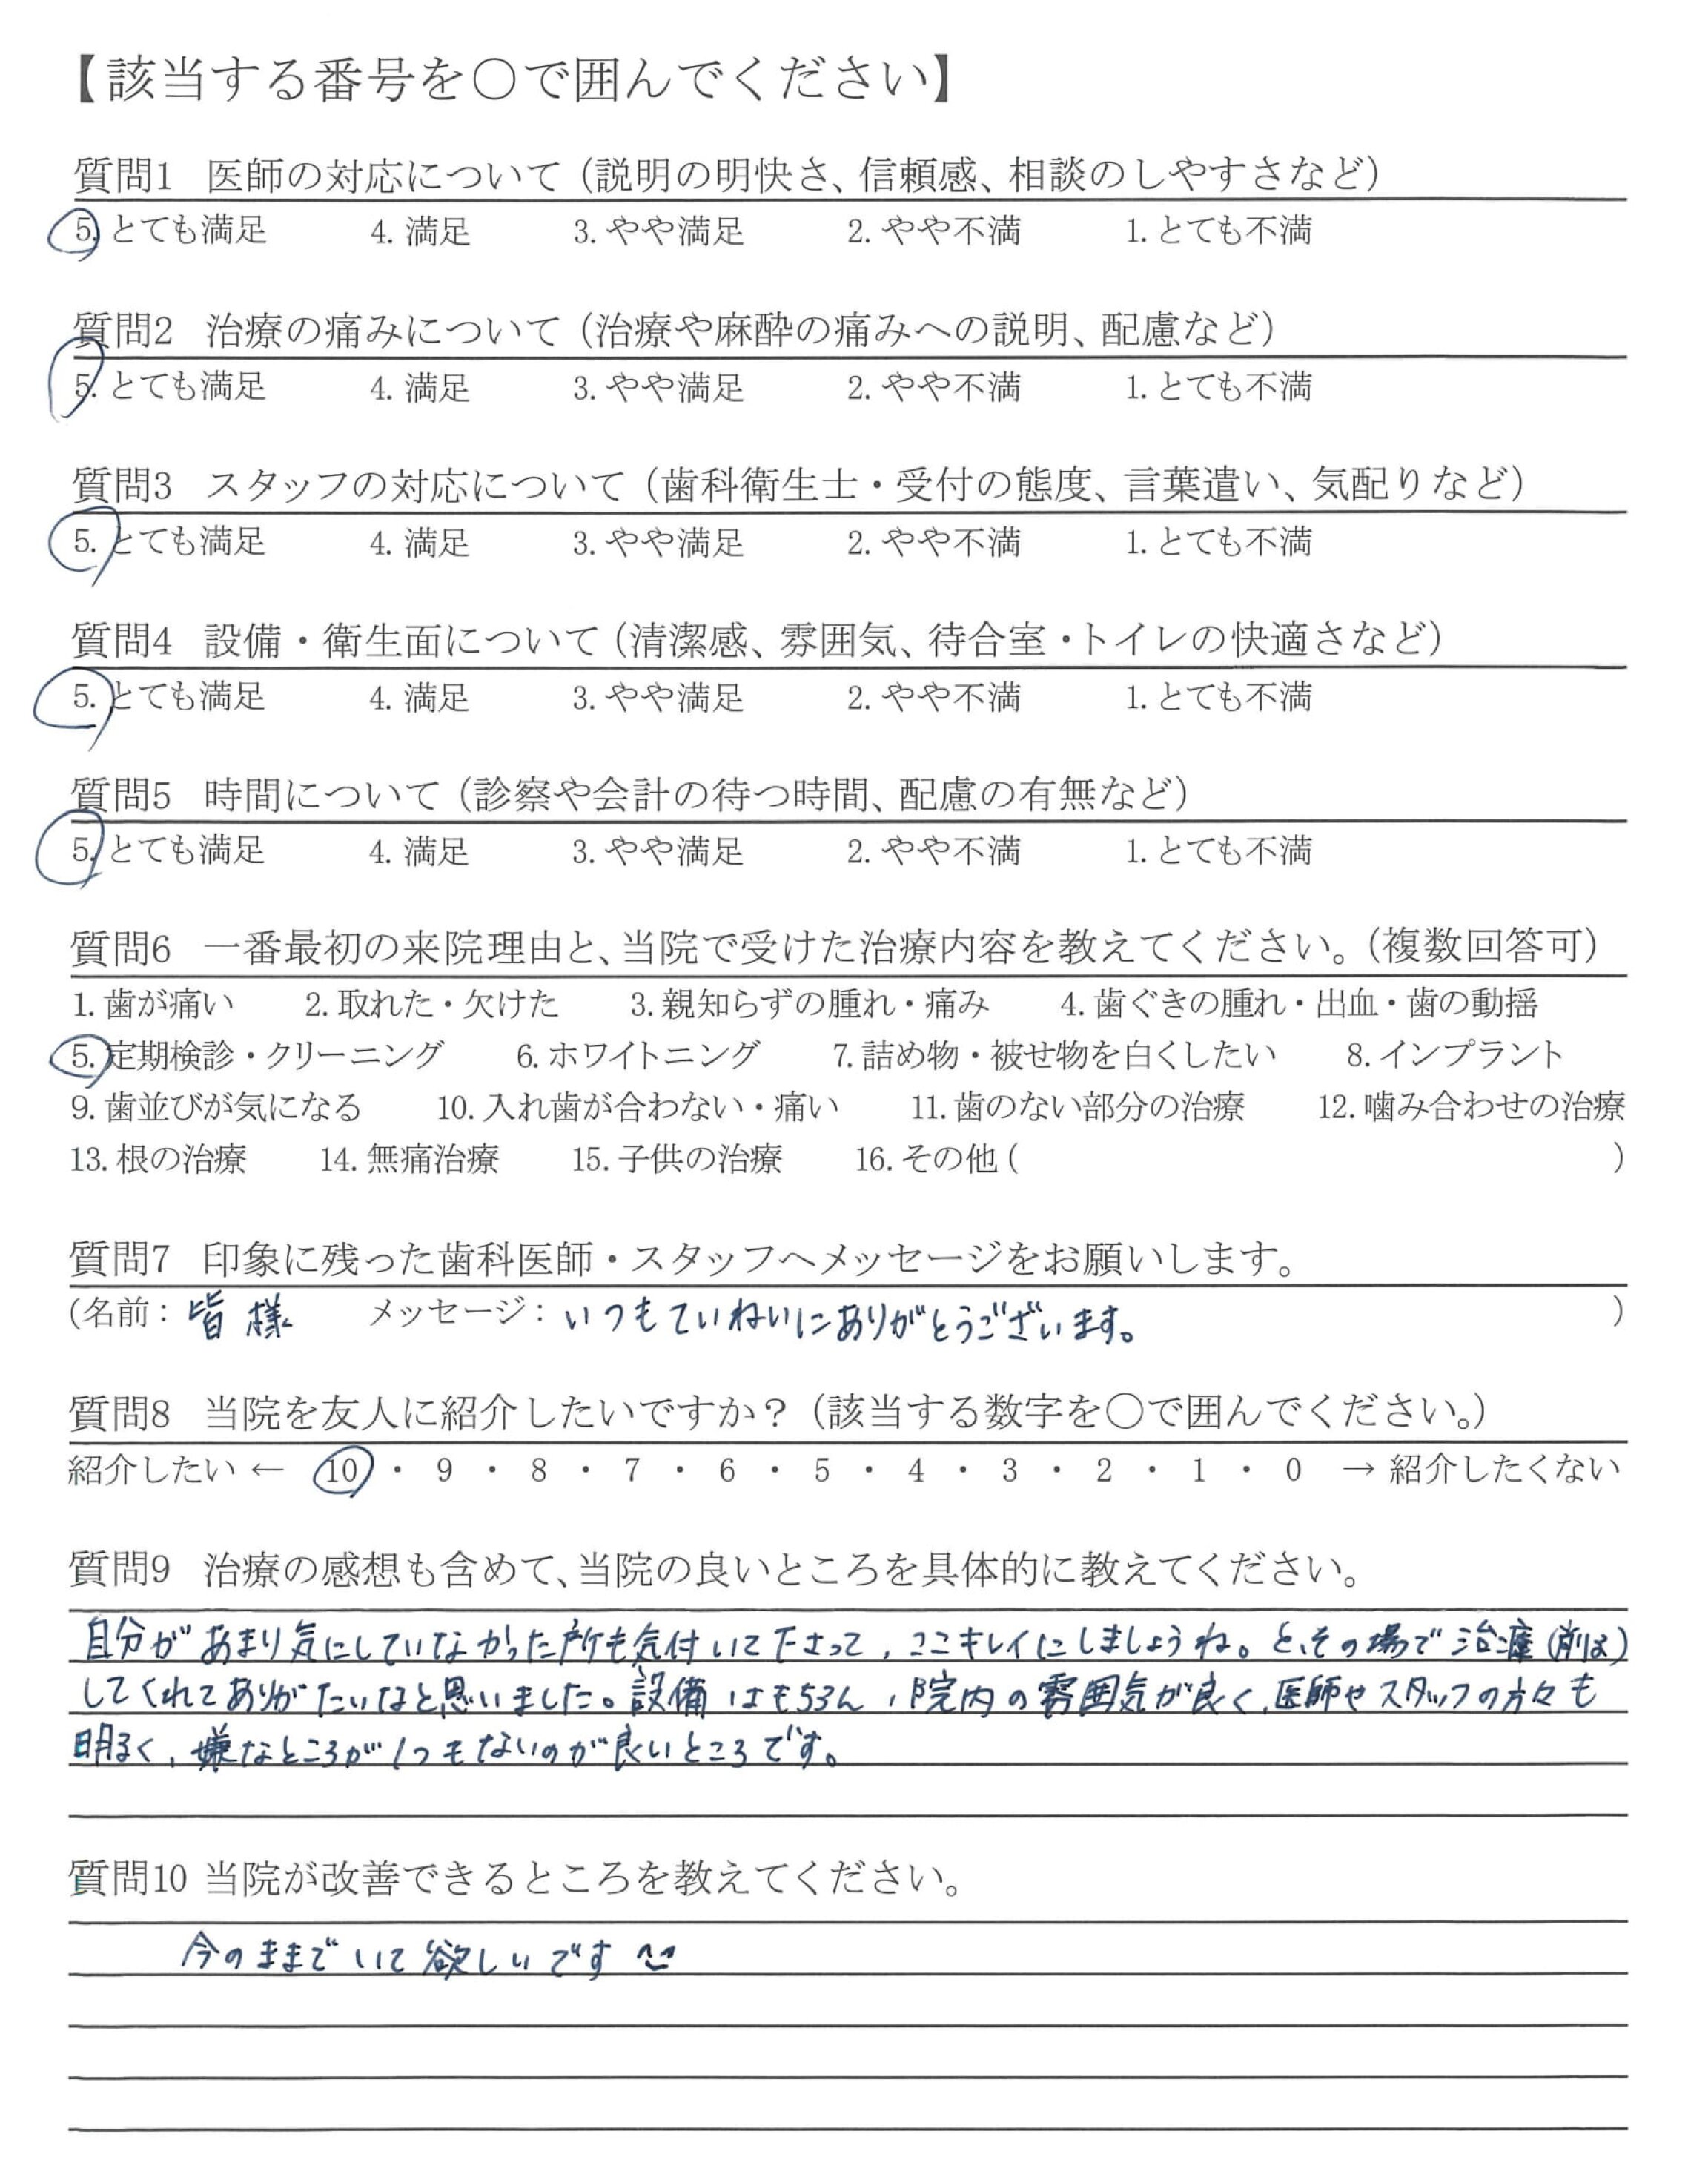 【該当する番号を○で囲んでください】
質問1 医師の対応について（説明の明快さ、信頼感、相談のしやすさなど）
5. とても満足 4. 満足 3. やや満足 2. やや不満 1. とても不満
質問2 治療の痛みについて（治療や麻酔の痛みへの説明、配慮など）
5. とても満足 4. 満足 3. やや満足 2. やや不満 1. とても不満
質問3 スタッフの対応について（歯科衛生士・受付の態度、言葉遣い、気配りなど）
5. とても満足 4. 満足 3. やや満足 2. やや不満 1. とても不満
質問4 設備・衛生面について（清潔感、雰囲気、待合室・トイレの快適さなど）
5. とても満足 4. 満足 3. やや満足 2. やや不満 1. とても不満
質問5 時間について（診察や会計の待つ時間、配慮の有無など）
5. とても満足 4. 満足 3. やや満足 2. やや不満 1. とても不満
質問6 一番最初の来院理由と、当院で受けた治療内容を教えてください。（複数回答可）
1. 歯が痛い 2. 取れた・欠けた 3. 親知らずの腫れ・痛み 4. 歯ぐきの腫れ・出血・歯の動揺
5. 定期検診・クリーニング 6. ホワイトニング 7. 詰め物・被せ物を白くしたい 8. インプラント
9. 歯並びが気になる 10. 入れ歯が合わない・痛い 11. 歯のない部分の治療 12. 噛み合わせの治療
13. 根の治療 14. 無痛治療 15. 子供の治療 16. その他（ ）
質問7 印象に残った歯科医師・スタッフへメッセージをお願いします。
（名前：皆様 メッセージ：いつもていねいにありがとうございます。 ）
質問8 当院を友人に紹介したいですか？（該当する数字を○で囲んでください。）
紹介したい ← 10 ・ 9 ・ 8 ・ 7 ・ 6 ・ 5 ・ 4 ・ 3 ・ 2 ・ 1 ・ 0 → 紹介したくない
質問9 治療の感想も含めて、当院の良いところを具体的に教えてください。
自分があまり気にしていなかった所も気付いて下さって、ここキレイにしましょうね。と、その場で治療（削る）
してくれてありがたいなと思いました。設備はもちろん、院内の雰囲気が良く、医師やスタッフの方々も
明るく、嫌なところが1つもないのが良いところです。
質問10 当院が改善できるところを教えてください。
今のままでいて欲しいです